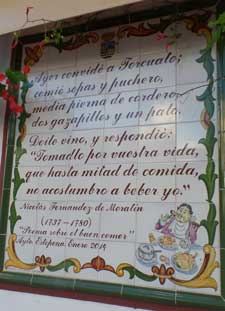 Ayer convidé a Torcuato;
comió sopas y puchero,
media pierna de cordero,
dos gazapillos y un pato.
Doile vino, y respondió:
"Tomadlo por vuestra vida,
que hasta mitad de comida,
no acostumbro a beber yo."
Nicolás Fernandez de Moratín
(1737-1780)
"Poema sobre el buen comer"
Ayto. Estepona. Enero 2014